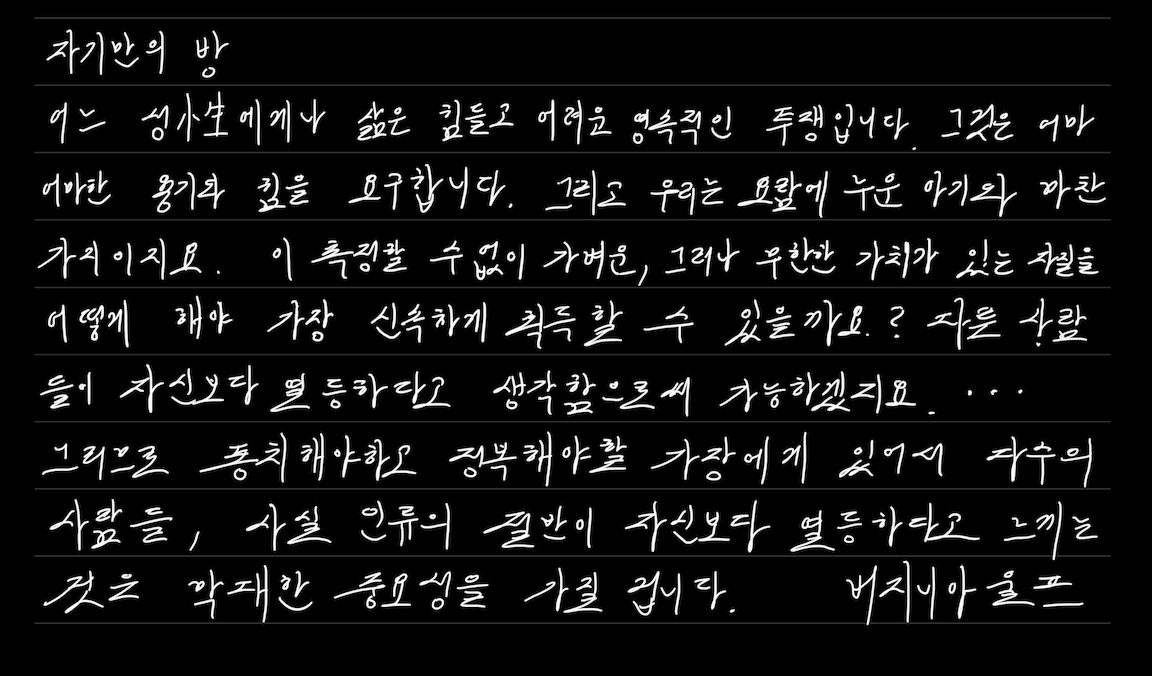 자기만의 방
어느 성个生에게나 삶은 힘들고 어려운 영속적인 투쟁입니다. 그것은 어마
어마한 용기와 힘을 요구합니다. 그리고 우리는 요람에 누운 아기와 마찬
가지이지요. 이 측정할 수 없이 가벼운, 그러나 무한한 가치가 있는 자질을
어떻게 해야 가장 신속하게 획득할 수 있을까요.? 다른 사람
들이 자신보다 열등하다고 생각함으로써 가능하겠지요. ...
그러므로 통치해야하고 정복해야할 가장에게 있어서 다수의
사람들, 사실 인류의 절반이 자신보다 열등하다고 느끼는
것은 막대한 중요성을 가질 겁니다. 버지니아 울프